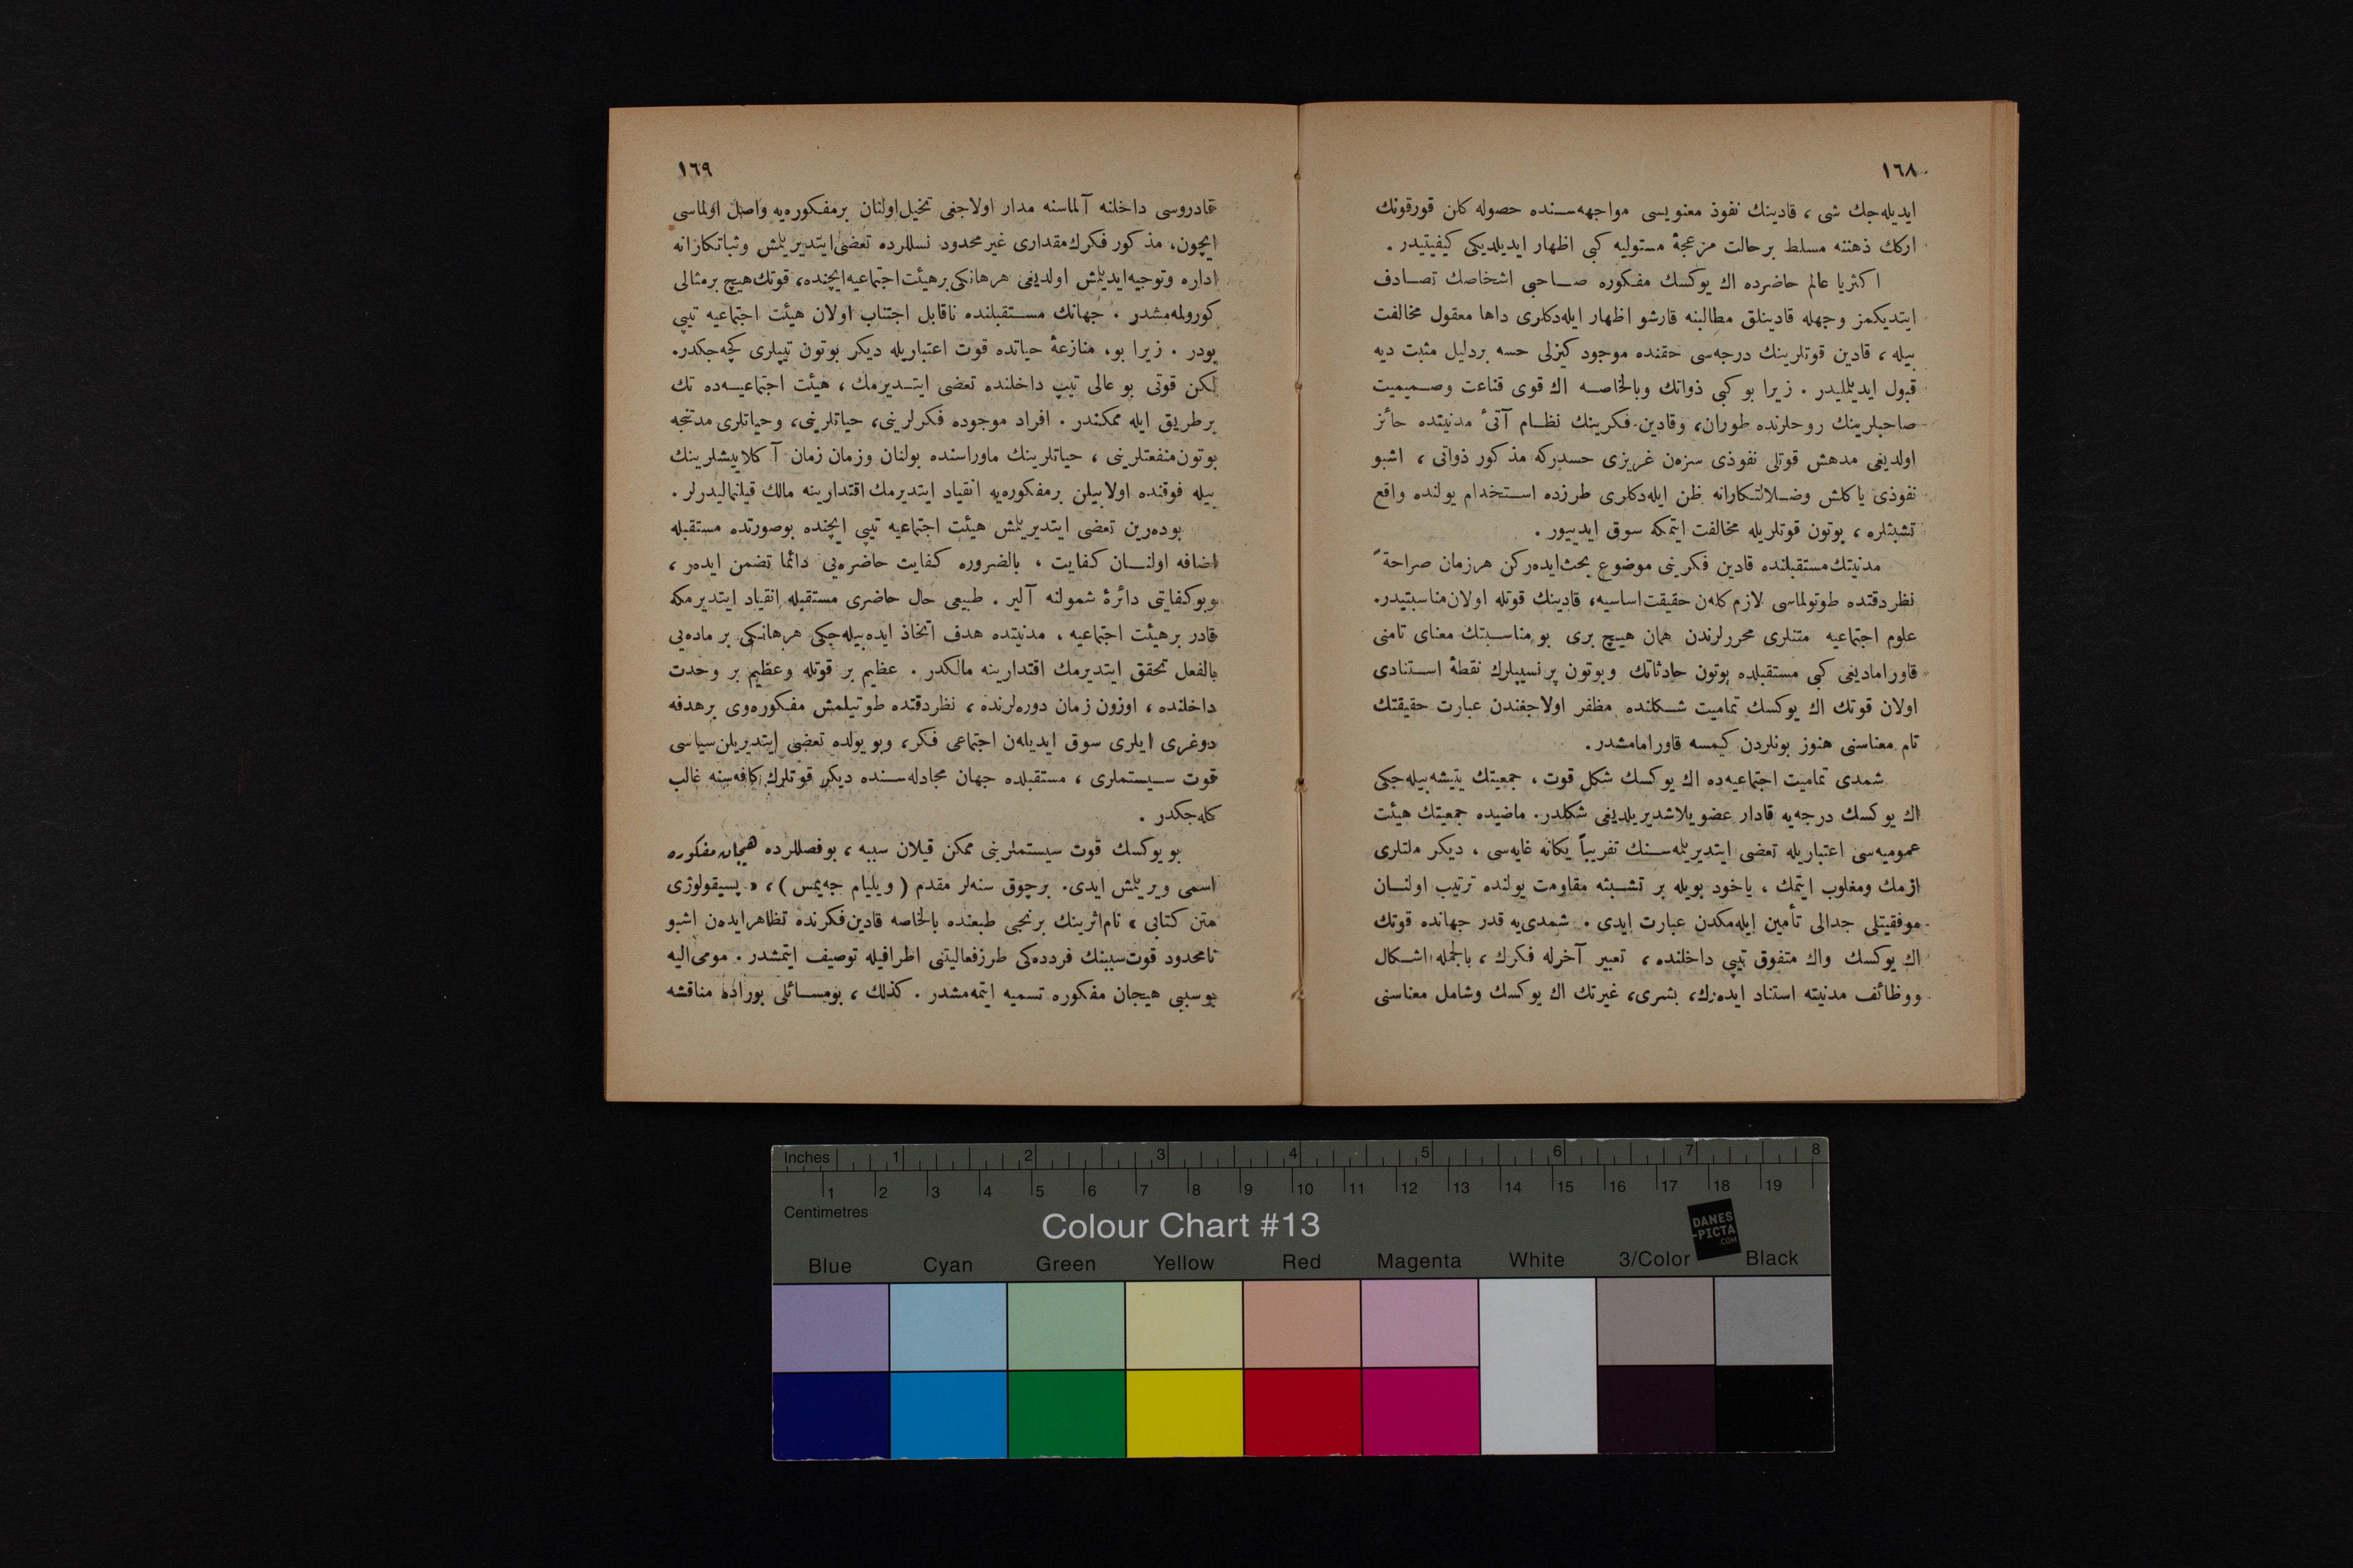 ١٦٨
ايديله‌جك شی ، قادينك نفوذ معنويسی مواجهه‌سنده حصوله كلن قورقونك
اركك ذهننه مسلط برحالت مزعجهٔ مستوليه كبی اظهار ايديلديكی كيفيتيدر .
اكثريا عالم حاضرده اك يوكسك مفكوره صاحبی اشخاصك تصادف
ايتديكمز وجهله قادينلق مطالبنه قارشو اظهار ايله‌دكلری داها معقول مخالفت
بيله ، قادين قوتلرينك درجه‌سی حقنده موجود كيزلی حسه بردليل مثبت ديه
قبول ايديلمليدر . زيرا بو كبی ذواتك وبالخاصه اك قوی قناعت وصميميت
صاحبلرينك روحلرنده طوران، وقادين فكرينك نظام آتئ مدنيتده حائز
اولديغی مدهش قوتلی نفوذی سزه‌ن غريزی حسدركه مذكور ذواتی ، اشبو
نفوذی ياكلش وضلالتكارانه ظن ايله‌دكلری طرزده استخدام يولنده واقع
تشبثلره ، بوتون قوتلريله مخالفت ايتمكه سوق ايدييور .
مدنيتك مستقبلنده قادين فكرينی موضوع بحث ايده‌ركن هرزمان صراحةً
نظردقتده طوتولماسی لازم كله‌ن حقيقت اساسيه، قادينك قوتله اولان مناسبتيدر.
علوم اجتماعيه متنلری محررلرندن همان هيچ بری بو مناسبتك معنای تامنی
قاوراماديغی كبی مستقبلده بوتون حادثاتك وبوتون پرنسيپلرك نقطهٔ استنادی
اولان قوتك اك يوكسك تماميت شكلنده مظفر اولاجغندن عبارت حقيقتك
تام معناسنی هنوز بونلردن كيمسه قاورامامشدر .
شمدی تماميت اجتماعيه‌ده اك يوكسك شكل قوت ، جمعيتك يتيشه‌بيله‌جكی
اك يوكسك درجه‌يه قادار عضويلاشديريلديغی شكلدر. ماضيده جمعيتك هيئت
عموميه‌سی اعتباريله تعضی ايتديريلمه‌سنك تقريباً يكانه غايه‌سی ، ديكر ملتلری
ازمك ومغلوب ايتمك ، ياخود بويله بر تشبثه مقاومت يولنده ترتيب اولنان
موفقيتلی جدالی تأمين ايله‌مكدن عبارت ايدی . شمدی‌يه قدر جهانده قوتك
اك يوكسك واك متفوق تيپی داخلنده ، تعبير آخرله فكرك ، بالجمله اشكال
ووظائف مدنيته استناد ايده‌رك، بشری، غيرتك اك يوكسك وشامل معناسنی
١٦٩
قادروسی داخلنه آلماسنه مدار اولاجغی تخيل اولنان برمفكوره‌يه واصل اولماسی
ايچون، مذكور فكرك مقداری غير محدود نسللرده تعضی ايتديريلمش وثباتكارانه
اداره وتوجيه ايديلمش اولديغی هرهانكی برهيئت اجتماعيه ايچنده، قوتك هيچ برمثالی
كورولمه‌مشدر . جهانك مستقبلنده ناقابل اجتناب اولان هيئت اجتماعيه تيپی
بودر . زيرا بو، منازعهٔ حياتده قوت اعتباريله ديكر بوتون تيپلری كچه‌جكدر.
لكن قوتی بو عالی تيپ داخلنده تعضی ايتديرمك ، هيئت اجتماعيه‌ده تك
برطريق ايله ممكندر . افراد موجوده فكرلرينی، حياتلرينی، وحياتلری مدتنجه
بوتون منفعتلرينی ، حياتلرينك ماوراسنده بولنان وزمان زمان آكلاييشلرينك
بيله فوقنده اولابيلن برمفكوره‌يه انقياد ايتديرمك اقتدارينه مالك قيلنماليدرلر .
بوده‌رين تعضی ايتديريلمش هيئت اجتماعيه تيپی ايچنده بوصورتده مستقبله
اضافه اولنان كفايت ، بالضروره كفايت حاضره‌يی دائما تضمن ايده‌ر ،
وبوكفايتی دائرهٔ شمولنه آلير . طبيعی حال حاضری مستقبله انقياد ايتديرمكه
قادر برهيئت اجتماعيه ، مدنيتده هدف اتخاذ ايده‌بيله‌جكی هرهانكی بر ماده‌يی
بالفعل تحقق ايتديرمك اقتدارينه مالكدر . عظيم بر قوتله وعظيم بر وحدت
داخلنده ، اوزون زمان دوره‌لرنده ، نظردقتده طوتيلمش مفكوره‌وی برهدفه
دوغری ايلری سوق ايديله‌ن اجتماعی فكر، وبو يولده تعضی ايتديريلن سياسی
قوت سيستملری ، مستقبلده جهان مجادله‌سنده ديكر قوتلرك كافه‌سنه غالب
كله‌جكدر .
بو يوكسك قوت سيستملرينی ممكن قيلان سببه ، بوفصللرده هيجان مفكوره
اسمی ويريلمش ايدی. برچوق سنه‌لر مقدم ( ويليام جه‌يمس ) ، « پسيقولوژی
متن كتابی » نام اثرينك برنجی طبعنده بالخاصه قادين فكرنده تظاهر ايده‌ن اشبو
نامحدود قوت سببنك فردده‌كی طرزفعاليتنی اطرافيله توصيف ايتمشدر . مومی اليه
بوسببی هيجان مفكوره تسميه ايتمه‌مشدر . كذلك ، بومسائلی بوراده مناقشه
Inches 1 2 3 4 5 6 7 8
1 2 3 4 5 6 7 8 9 10 11 12 13 14 15 16 17 18 19
Centimetres
Colour Chart #13
DANES
-PICTA
.COM
Blue Cyan Green Yellow Red Magenta White 3/Color Black